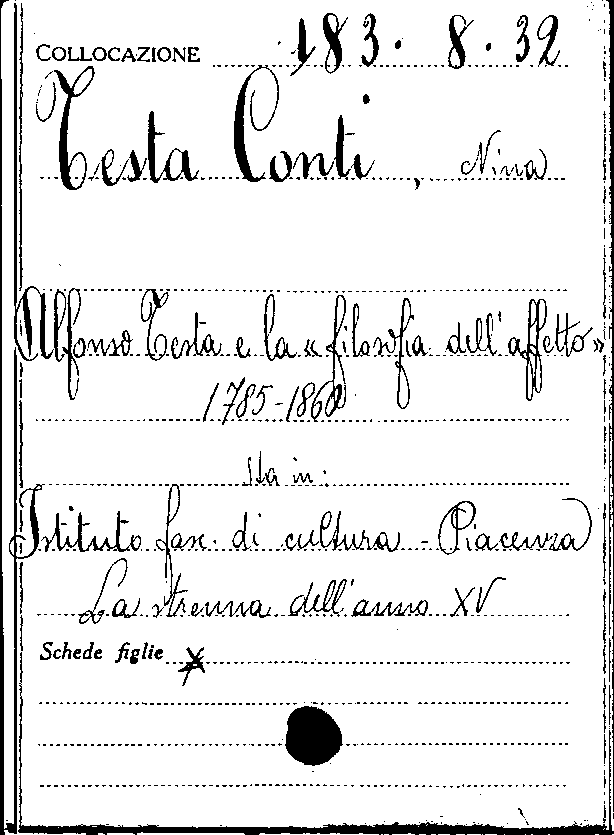 COLLOCAZIONE 183. 8. 32
Testa Conti, Nina
Alfonso Testa e la «filosofia dell'affetto»
1785-1860
Sta in:
Istituto fasc. di cultura - Piacenza
La strenna dell'anno XV
Schede figlie X